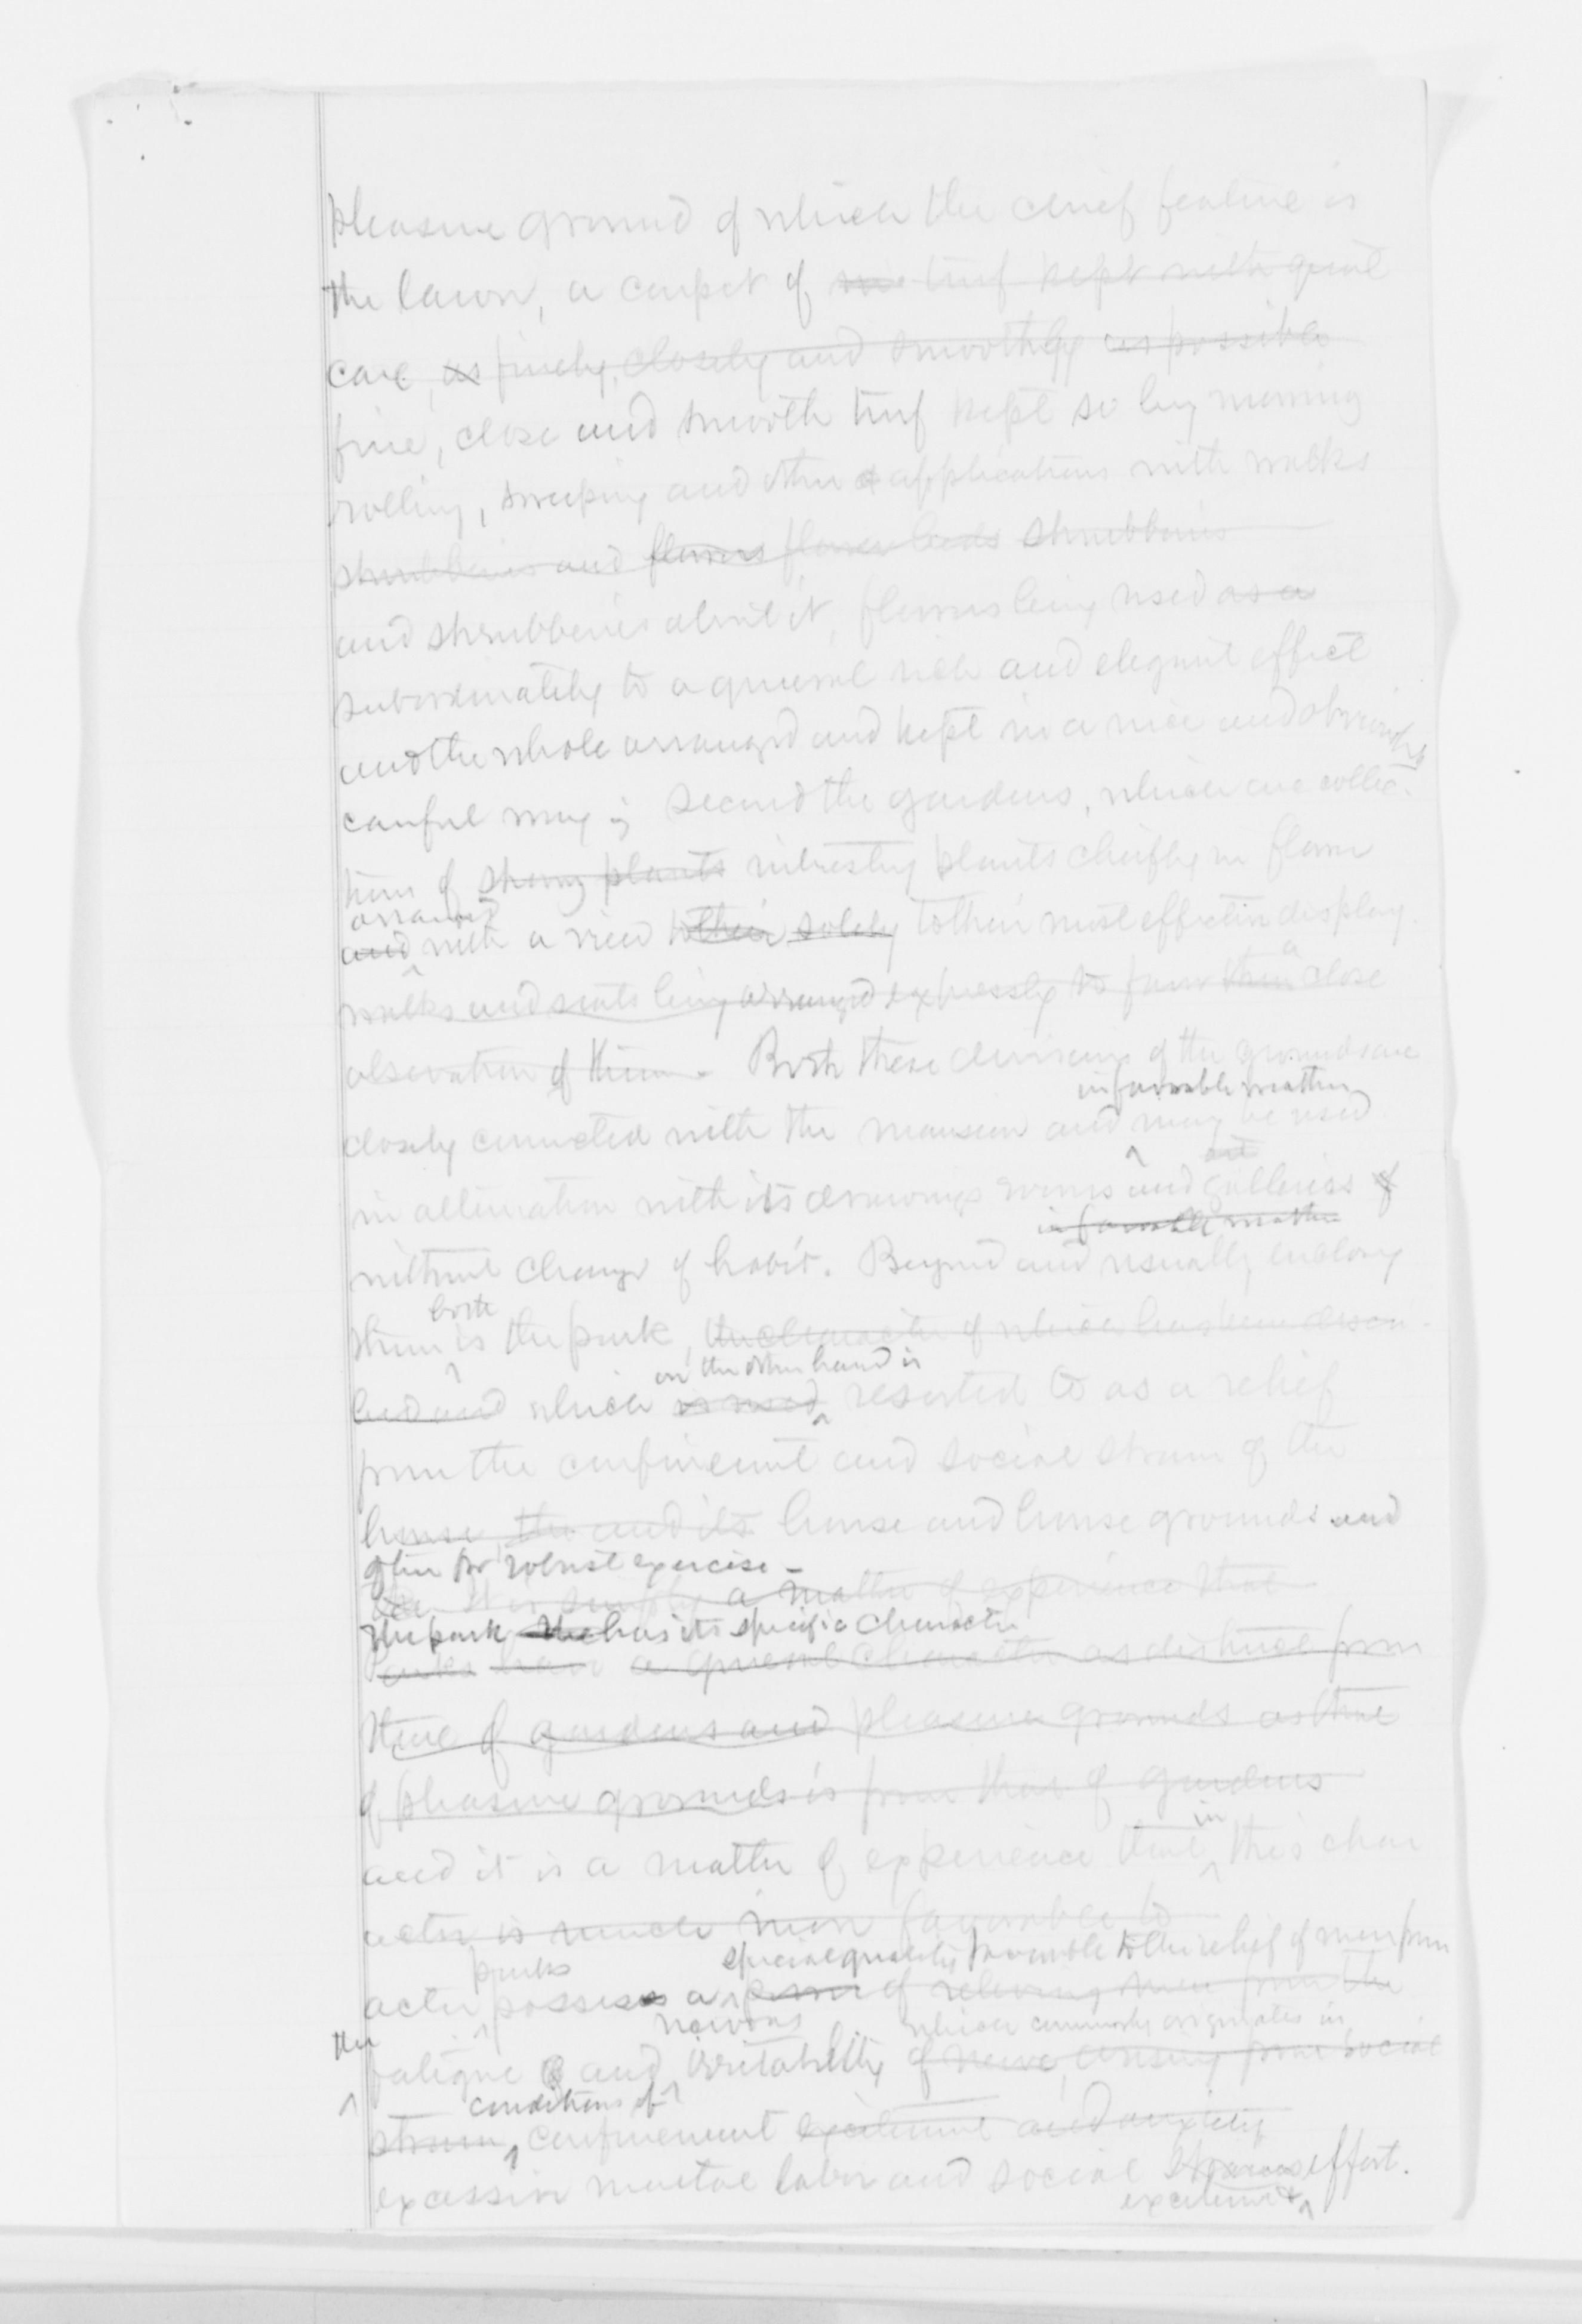 pleasure ground of which the chief feature is
the lawn, a carpet of turf kept with great
care, as finely, closely and smoothly as possible
fine, close and smooth turf kept so by mowing
rolling, sweeping and other applications with walks
shrubberies and flowers flower beds shrubberies
and shrubberies about it, flowers being used as a
subordinately to a general rich and elegant effect
and the whole arranged and kept in a nice and obviously
careful way; second the gardens, which are collec-
tions of showy plants interesting plants chiefly in flower
arranged
and with a view to their solely to their most effective display.
a
walks and seats being arranged expressly to favor their close
observation of them. Both these divisions of the grounds are
in favorable weather
closely connected with the mansion and may be used
art
in alternation with its drawing rooms and galleries of
in favorable weather
without change of habit. Beyond and usually enclosing
both
them is the park, the character of which has been descri-
on the other hand is
bed and which is used resorted to as a relief
from the confinement and social strain of the
house, the and its house and house grounds and
often for robust exercise-
it is simply a matter of experience that
The park has its specific character
Parks have a general character as distinct from
that of gardens and pleasure grounds as that
of pleasure grounds is from that of gardens
in
and it is a matter of experience that this char
acter is much more favorable to
parks special quality favorable to the relief of men from
acter possess a power of relieving men from the
nervous which commonly originates in
the
fatigue and irritability of nerve, arising from social
conditions of
strain, confinement excitement and anxiety
excessive mental labor and social effort.
excitement